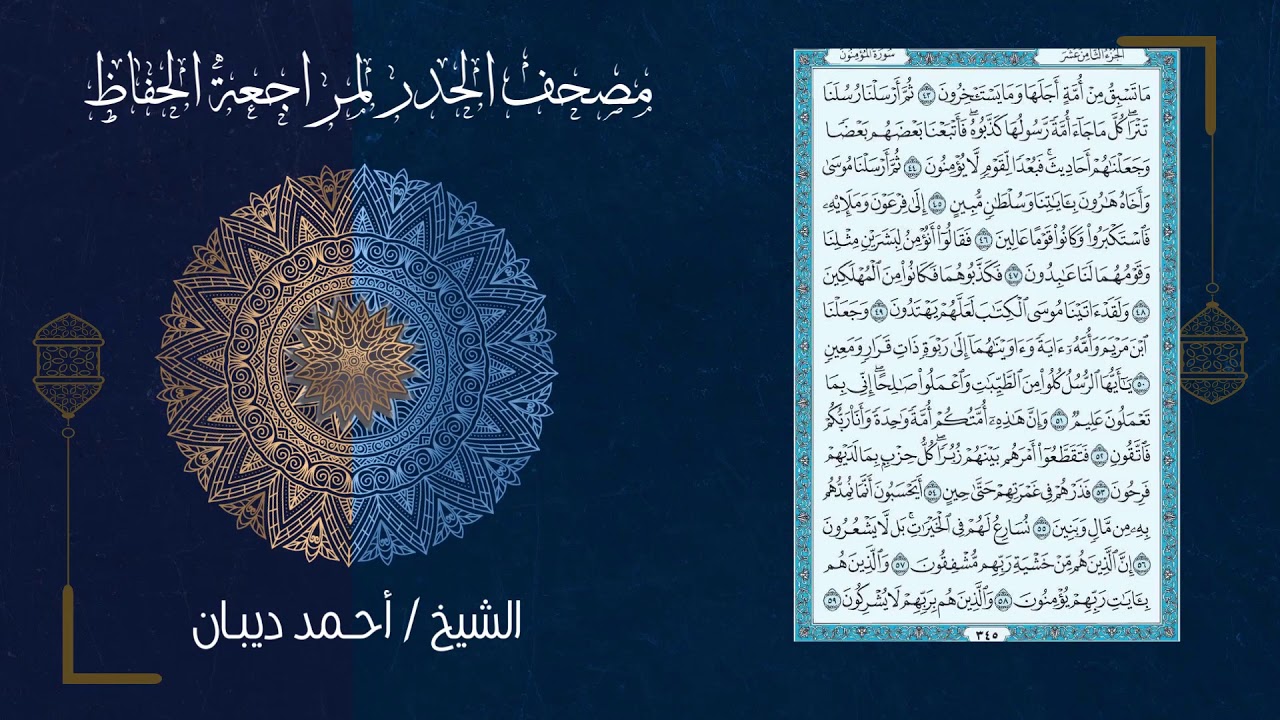 مصحف الحدر لمراجعة الحفاظ
الشيخ / أحمد ديبان
الجزء الثامن عشر
سورة المؤمنون
مَا تَسْبِقُ مِنْ أُمَّةٍ أَجَلَهَا وَمَا يَسْتَـْٔخِرُونَ ٤٣ ثُمَّ أَرْسَلْنَا رُسُلَنَا
تَتْرَا ۖ كُلَّ مَا جَآءَ أُمَّةً رَّسُولُهَا كَذَّبُوهُ ۚ فَأَتْبَعْنَا بَعْضَهُم بَعْضًا
وَجَعَلْنَٰهُمْ أَحَادِيثَ ۚ فَبُعْدًا لِّقَوْمٍ لَّا يُؤْمِنُونَ ٤٤ ثُمَّ أَرْسَلْنَا مُوسَىٰ
وَأَخَاهُ هَٰرُونَ بِـَٔايَٰتِنَا وَسُلْطَٰنٍ مُّبِينٍ ٤٥ إِلَىٰ فِرْعَوْنَ وَمَلَإِي۟هِۦ
فَٱسْتَكْبَرُوا۟ وَكَانُوا۟ قَوْمًا عَالِينَ ٤٦ فَقَالُوٓا۟ أَنُؤْمِنُ لِبَشَرَيْنِ مِثْلِنَا
وَقَوْمُهُمَا لَنَا عَٰبِدُونَ ٤٧ فَكَذَّبُوهُمَا فَكَانُوا۟ مِنَ ٱلْمُهْلَكِينَ
٤٨ وَلَقَدْ ءَاتَيْنَا مُوسَى ٱلْكِتَٰبَ لَعَلَّهُمْ يَهْتَدُونَ ٤٩ وَجَعَلْنَا
ٱبْنَ مَرْيَمَ وَأُمَّهُۥٓ ءَايَةً وَءَاوَيْنَٰهُمَآ إِلَىٰ رَبْوَةٍ ذَاتِ قَرَارٍ وَمَعِينٍ
٥٠ يَٰٓأَيُّهَا ٱلرُّسُلُ كُلُوا۟ مِنَ ٱلطَّيِّبَٰتِ وَٱعْمَلُوا۟ صَٰلِحًا ۖ إِنِّى بِمَا
تَعْمَلُونَ عَلِيمٌ ٥١ وَإِنَّ هَٰذِهِۦٓ أُمَّتُكُمْ أُمَّةً وَٰحِدَةً وَأَنَا۠ رَبُّكُمْ
فَٱتَّقُونِ ٥٢ فَتَقَطَّعُوٓا۟ أَمْرَهُم بَيْنَهُمْ زُبُرًا ۖ كُلُّ حِزْبٍۭ بِمَا لَدَيْهِمْ
فَرِحُونَ ٥٣ فَذَرْهُمْ فِى غَمْرَتِهِمْ حَتَّىٰ حِينٍ ٥٤ أَيَحْسَبُونَ أَنَّمَا نُمِدُّهُم
بِهِۦ مِن مَّالٍ وَبَنِينَ ٥٥ نُسَارِعُ لَهُمْ فِى ٱلْخَيْرَٰتِ ۚ بَل لَّا يَشْعُرُونَ
٥٦ إِنَّ ٱلَّذِينَ هُم مِّنْ خَشْيَةِ رَبِّهِم مُّشْفِقُونَ ٥٧ وَٱلَّذِينَ هُم
بِـَٔايَٰتِ رَبِّهِمْ يُؤْمِنُونَ ٥٨ وَٱلَّذِينَ هُم بِرَبِّهِمْ لَا يُشْرِكُونَ ٥٩
٣٤٥